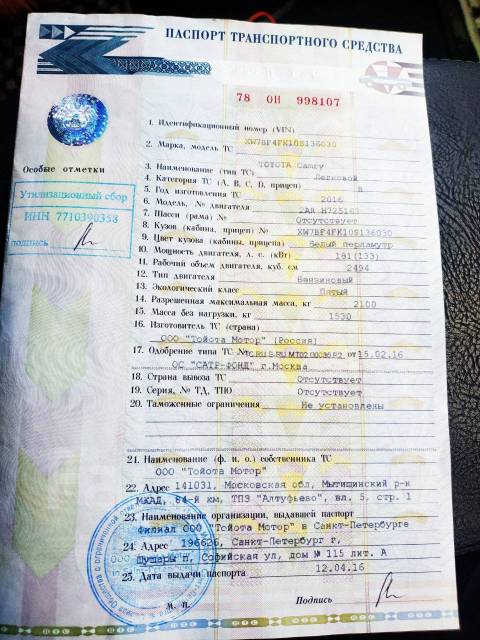 ПАСПОРТ ТРАНСПОРТНОГО СРЕДСТВА
78 ОН 998107
1. Идентификационный номер (VIN) XW7BF4FK10S136030
2. Марка, модель ТС TOYOTA Camry
3. Наименование (тип ТС) Легковой
4. Категория ТС (A, B, C, D, прицеп) B
5. Год изготовления ТС 2016
6. Модель, № двигателя 2AR H725163
7. Шасси (рама) № Отсутствует
8. Кузов (кабина, прицеп) № XW7BF4FK10S136030
9. Цвет кузова (кабины, прицепа) Белый перламутр
10. Мощность двигателя, л. с. (кВт) 181(133)
11. Рабочий объем двигателя, куб. см 2494
12. Тип двигателя Бензиновый
13. Экологический класс Пятый
14. Разрешенная максимальная масса, кг 2100
15. Масса без нагрузки, кг 1530
16. Изготовитель ТС (страна)
ООО "Тойота Мотор" (Россия)
17. Одобрение типа ТС № от 15.02.16
ОС "САТР-ФОНД" г.Москва
18. Страна вывоза ТС Отсутствует
19. Серия, № ТД, ТПО Отсутствует
20. Таможенные ограничения Не установлены
21. Наименование (ф. и. о.) собственника ТС
ООО "Тойота Мотор"
22. Адрес 141031, Московская обл, Мытищинский р-н
МКАД, 84-й км, ТПЗ "Алтуфьево", вл. 5, стр. 1
23. Наименование организации, выдавшей паспорт
Филиал ООО "Тойота Мотор" в Санкт-Петербурге
24. Адрес 196626, Санкт-Петербург г,
Шушары п, Софийская ул, дом № 115 лит. А
25. Дата выдачи паспорта 12.04.16
М. П. Подпись
Особые отметки
Утилизационный сбор
ИНН 7710390358
подпись